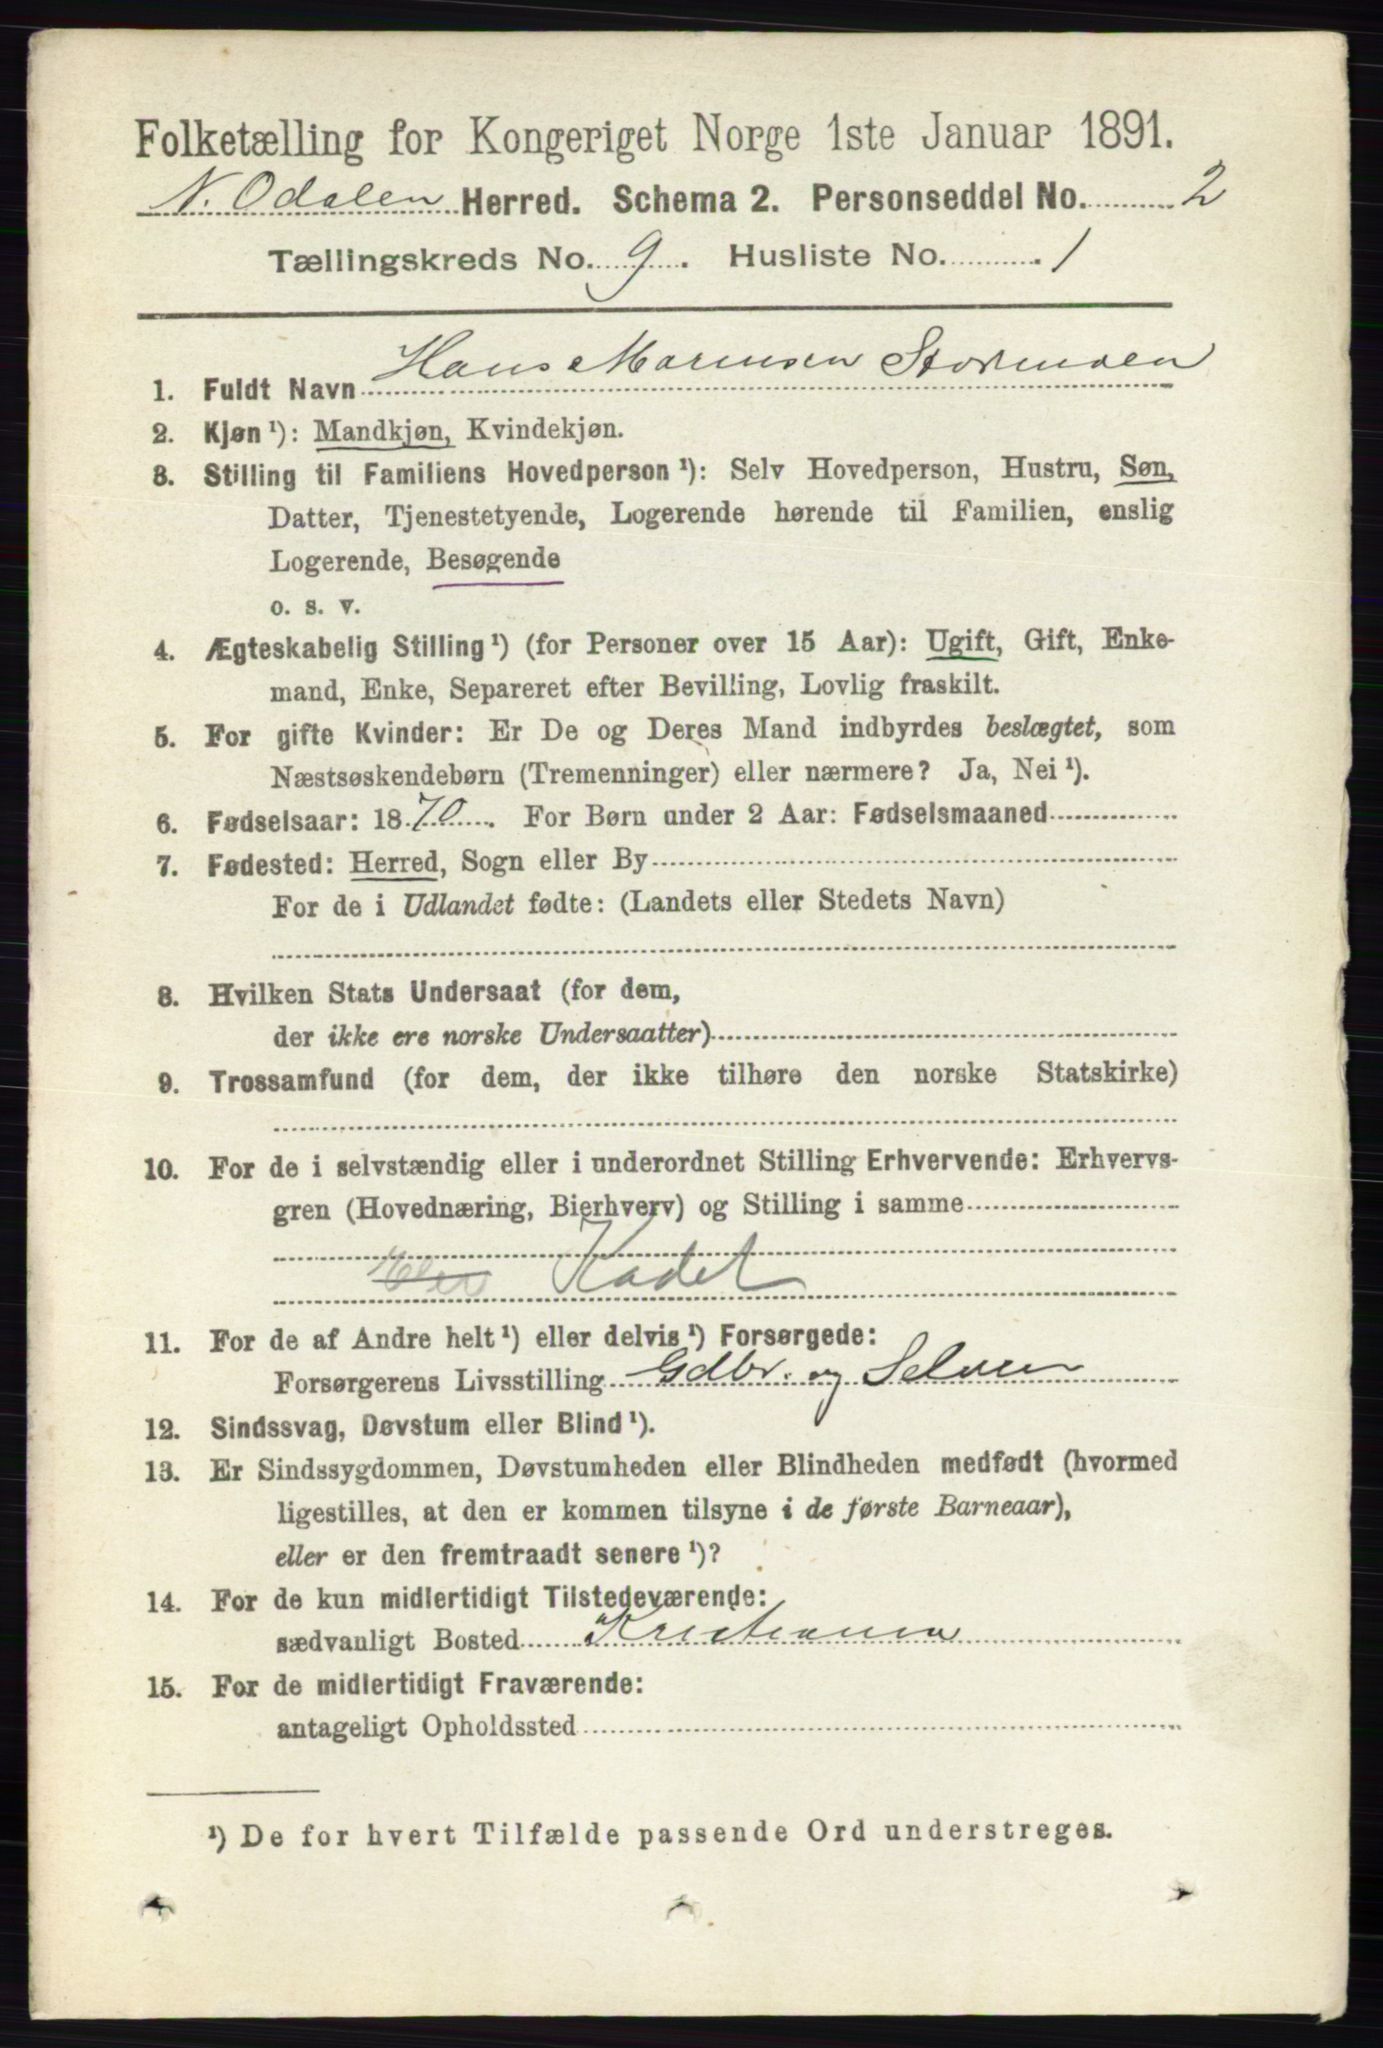 Folketælling for Kongeriget Norge 1ste Januar 1891.
N. Odalen Herred. Schema 2. Personseddel No. 2
Tællingskreds No. 9. Husliste No. 1
1. Fuldt Navn Hans Marensen Stormoen
2. Kjøn ¹): Mandkjøn, Kvindekjøn.
3. Stilling til Familiens Hovedperson ¹): Selv Hovedperson, Hustru, Søn,
Datter, Tjenestetyende, Logerende hørende til Familien, enslig
Logerende, Besøgende
o. s. v.
4. Ægteskabelig Stilling ¹) (for Personer over 15 Aar): Ugift, Gift, Enke-
mand, Enke, Separeret efter Bevilling, Lovlig fraskilt.
5. For gifte Kvinder: Er De og Deres Mand indbyrdes beslægtet, som
Næstsøskendebørn (Tremenninger) eller nærmere? Ja, Nei ¹).
6. Fødselsaar: 1870. For Børn under 2 Aar: Fødselsmaaned
7. Fødested: Herred, Sogn eller By
For de i Udlandet fødte: (Landets eller Stedets Navn)
8. Hvilken Stats Undersaat (for dem,
der ikke ere norske Undersaatter)
9. Trossamfund (for dem, der ikke tilhøre den norske Statskirke)
10. For de i selvstændig eller i underordnet Stilling Erhvervende: Erhvervs-
gren (Hovednæring, Bierhverv) og Stilling i samme
Kadet
11. For de af Andre helt ¹) eller delvis ¹) Forsørgede:
Forsørgerens Livsstilling Gdbr. og Selveier
12. Sindssvag, Døvstum eller Blind ¹).
13. Er Sindssygdommen, Døvstumheden eller Blindheden medfødt (hvormed
ligestilles, at den er kommen tilsyne i de første Barneaar),
eller er den fremtraadt senere ¹)?
14. For de kun midlertidigt Tilstedeværende:
sædvanligt Bosted Kristiania
15. For de midlertidigt Fraværende:
antageligt Opholdssted
¹) De for hvert Tilfælde passende Ord understreges.